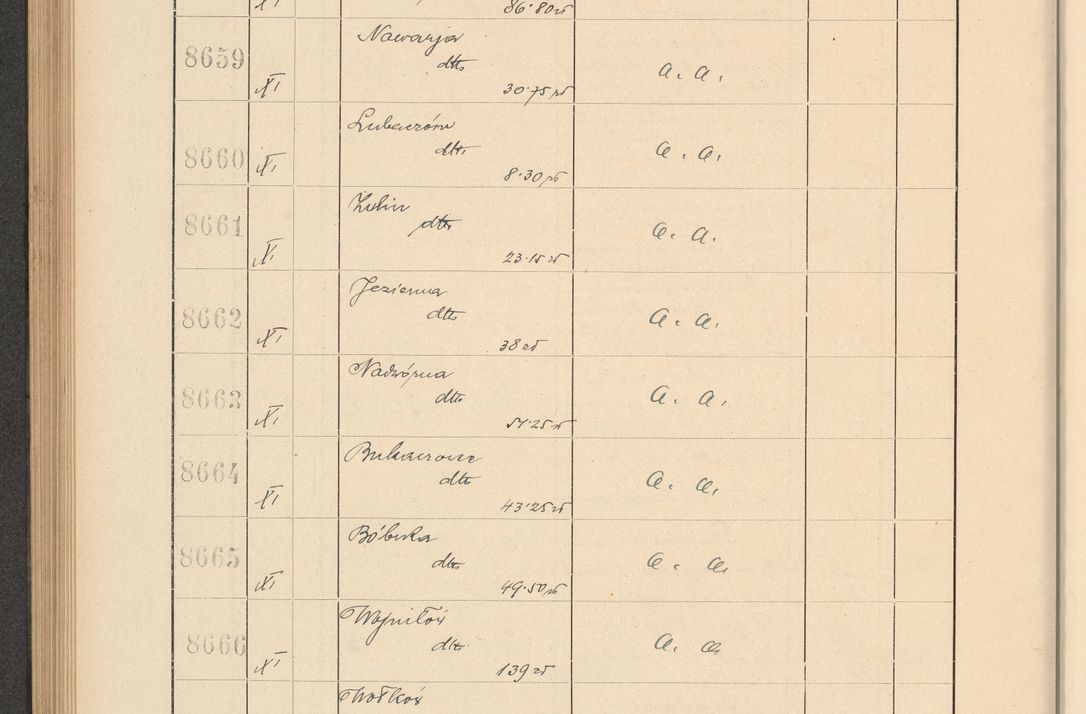 XI 86·80 zł
8659 XI Nawarja
dtto
30·75 zł a. a.
8660 XI Lubaczów
dtto
8·30 zł a. a.
8661 XI
dtto
23·15 zł a. a.
8662 XI Jezierna
dtto
38 zł a. a.
8663 XI Nadwórna
dtto
51·25 zł a. a.
8664 XI Bukaczowce
dtto
43·25 zł a. a.
8665 XI Bóbrka
dtto
49·50 zł a. a.
8666 XI Wojniłów
dtto
139 zł a. a.
Wołków